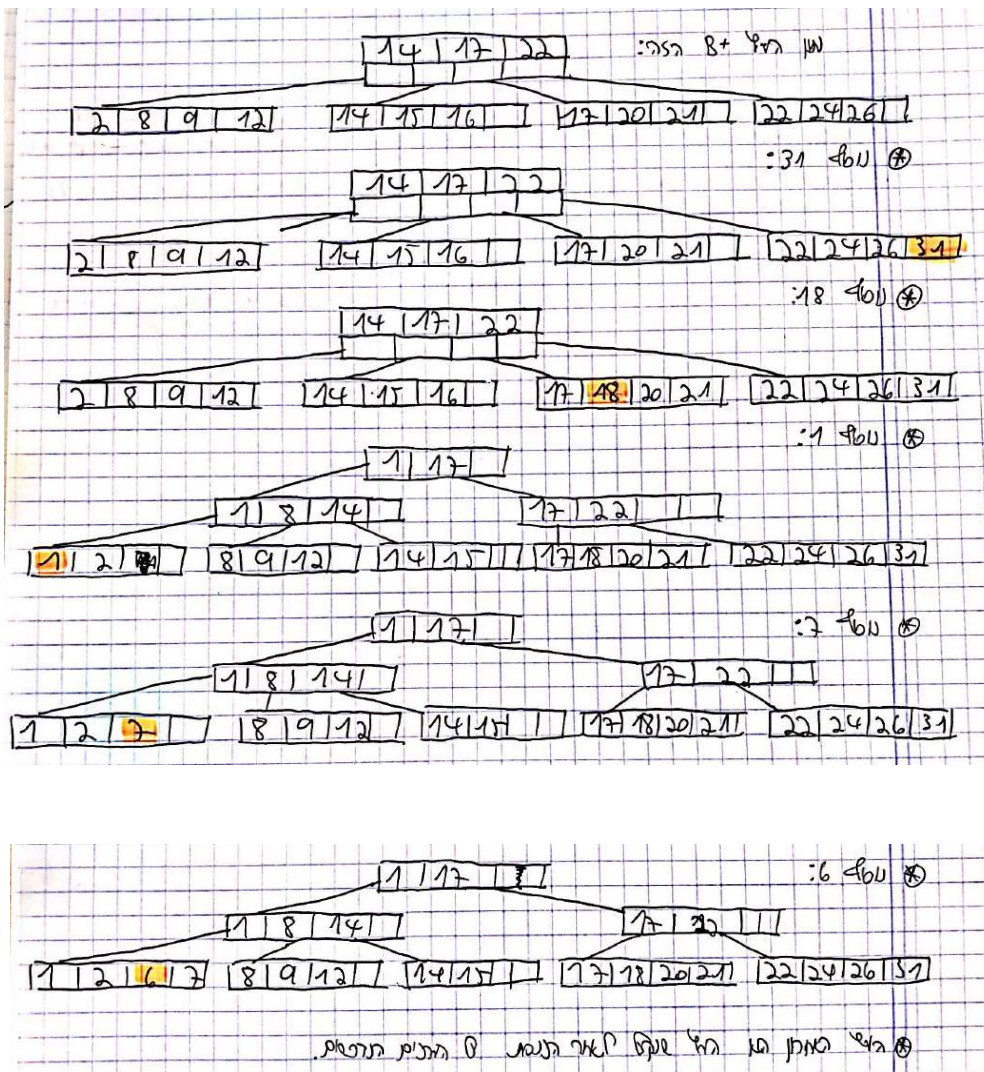 14 | 17 | 22 נתון העץ B+ הזה:
2 | 8 | 9 | 12 14 | 15 | 16 17 | 20 | 21 22 | 24 | 26
נוסיף 31:
14 | 17 | 22
2 | 8 | 9 | 12 14 | 15 | 16 17 | 20 | 21 22 | 24 | 26 | 31
נוסיף 18:
14 | 17 | 22
2 | 8 | 9 | 12 14 | 15 | 16 17 | 18 | 20 | 21 22 | 24 | 26 | 31
נוסיף 1:
1 | 17
1 | 8 | 14 17 | 22
1 | 2 8 | 9 | 12 14 | 15 17 | 18 | 20 | 21 22 | 24 | 26 | 31
נוסיף 7:
1 | 17
1 | 8 | 14 17 | 22
1 | 2 | 7 8 | 9 | 12 14 | 15 17 | 18 | 20 | 21 22 | 24 | 26 | 31
נוסיף 6:
1 | 17
1 | 8 | 14 17 | 22
1 | 2 | 6 | 7 8 | 9 | 12 14 | 15 17 | 18 | 20 | 21 22 | 24 | 26 | 31
העץ האחרון הוא העץ שנקבל לאחר הכנסת כל